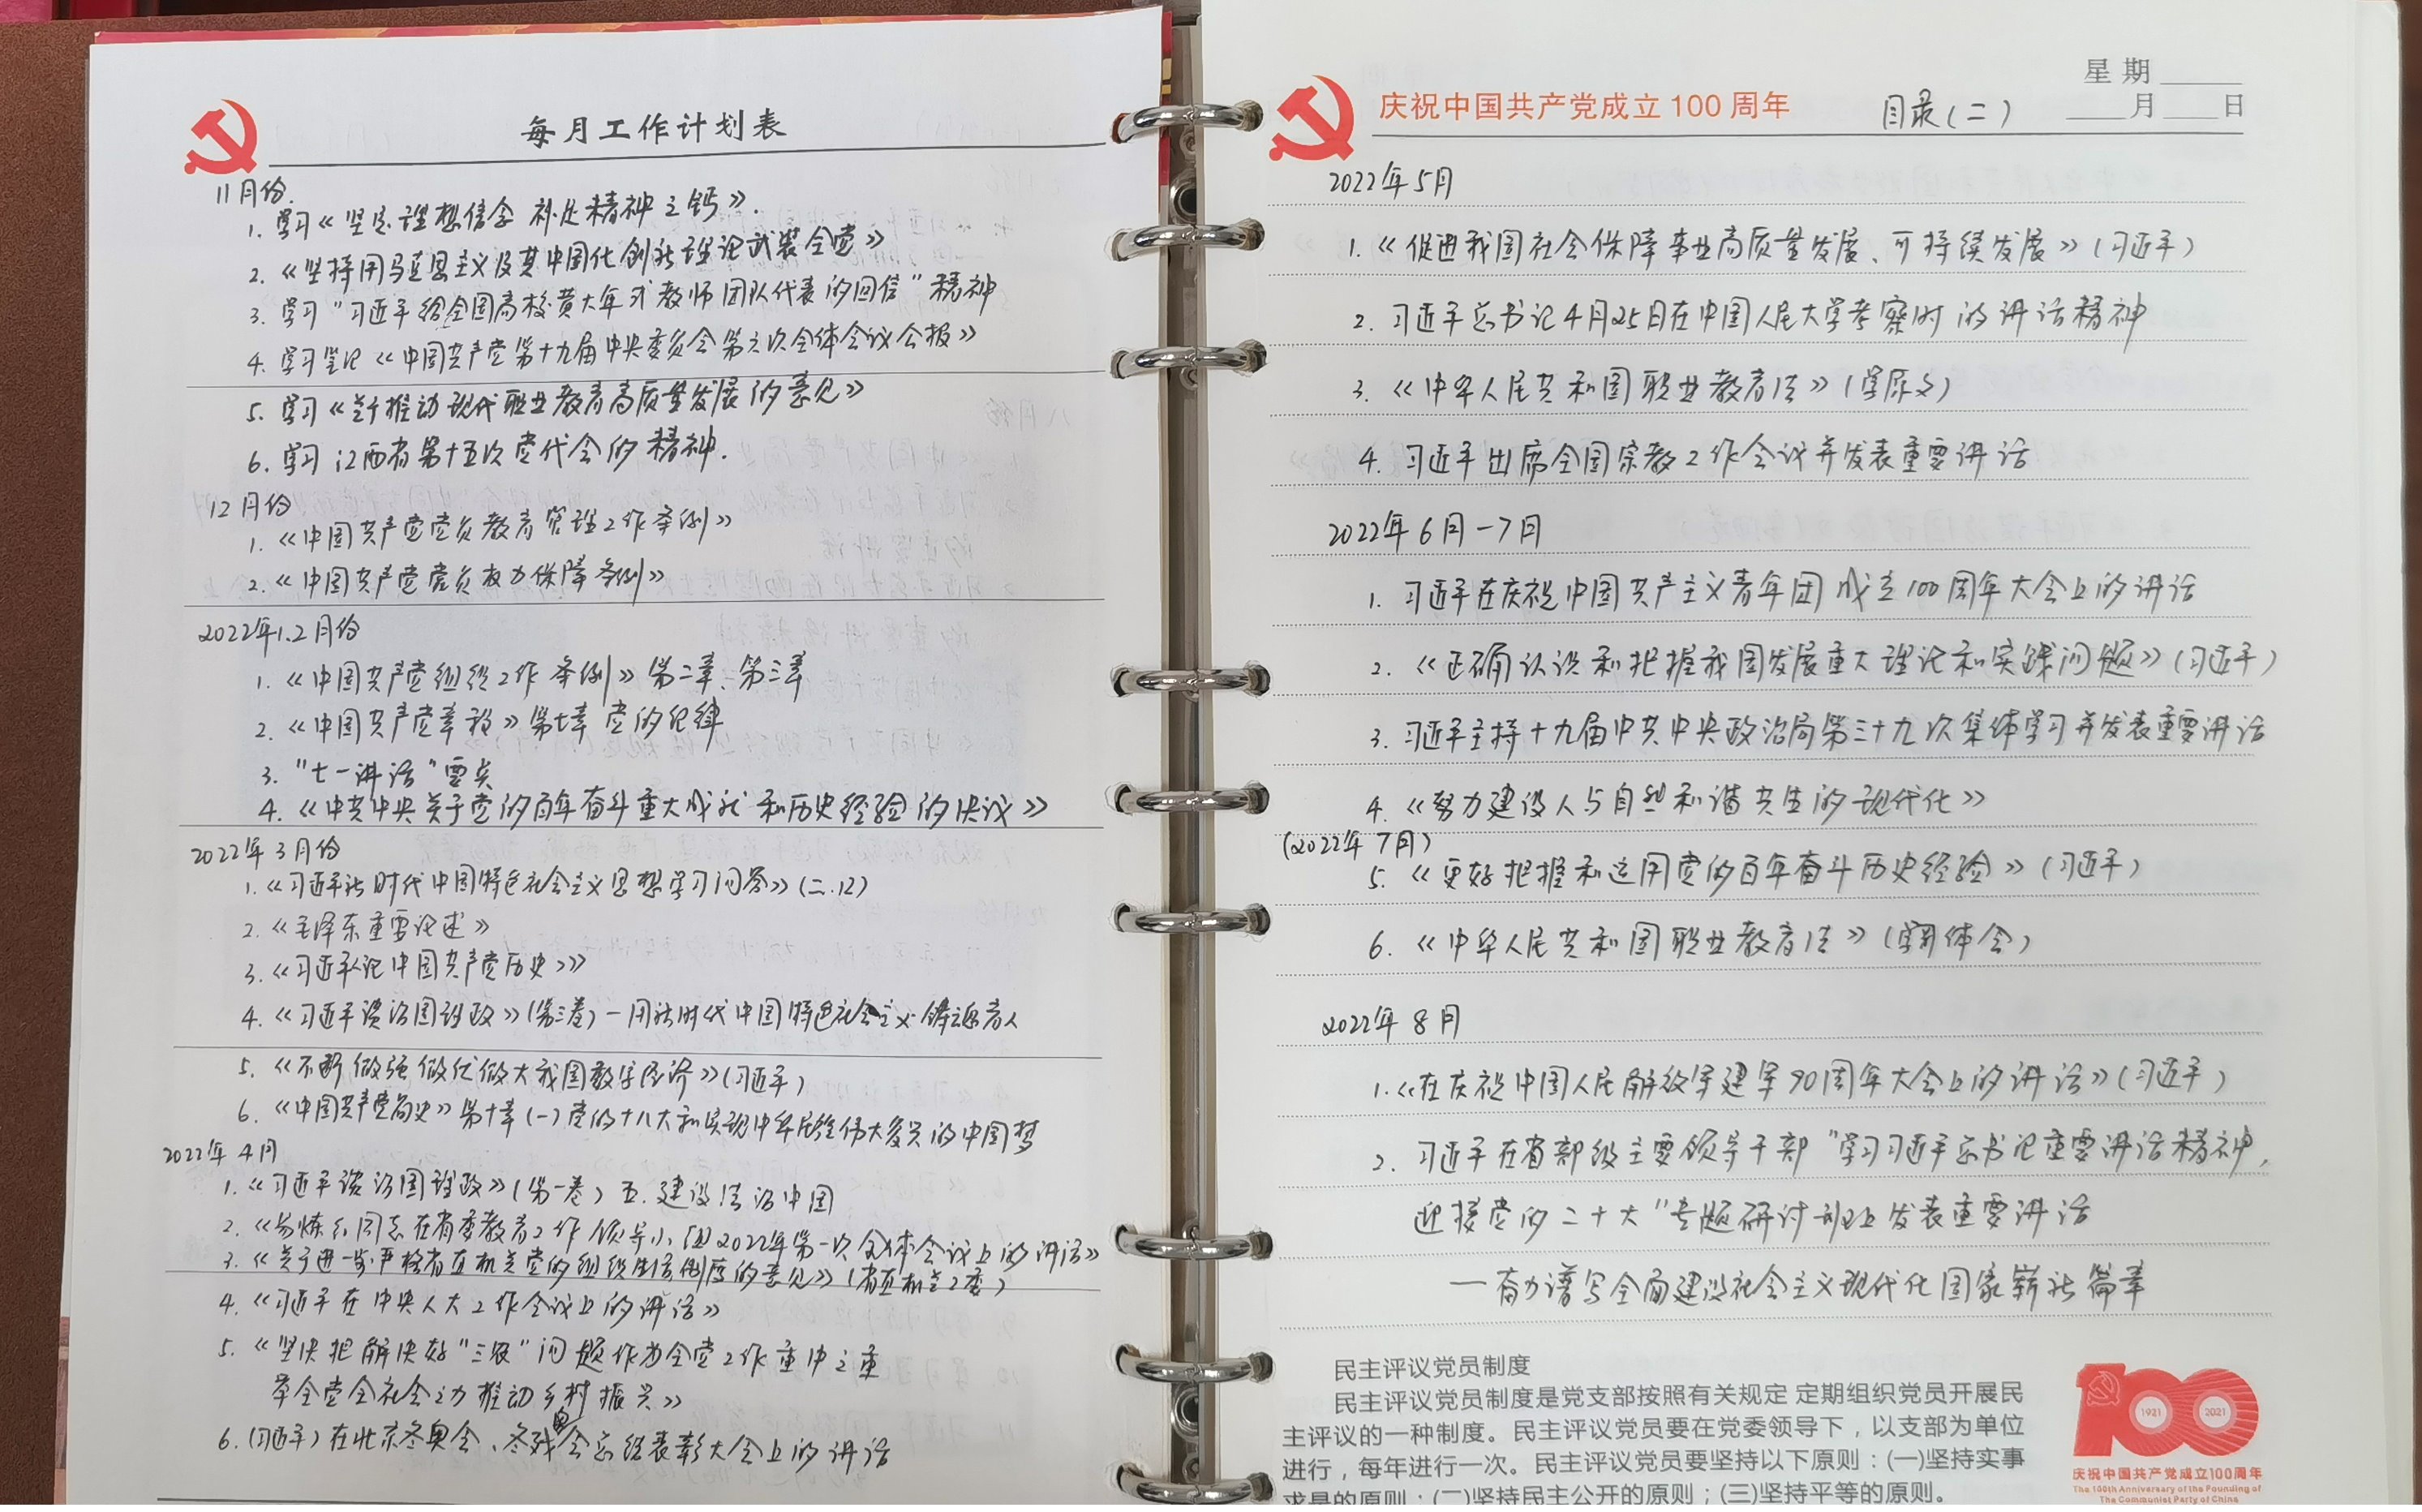 每月工作计划表
11月份.
1. 学习《坚定理想信念 补足精神之钙》.
2. 《坚持用马克思主义及其中国化创新理论武装全党》
3. 学习"习近平给全国高校黄大年式教师团队代表的回信"精神
4. 学习笔记《中国共产党第十九届中央委员会第六次全体会议公报》
5. 学习《关于推动现代职业教育高质量发展的意见》
6. 学习江西省第十五次党代会的精神.
12月份
1. 《中国共产党党员教育管理工作条例》
2. 《中国共产党党员权力保障条例》
2022年1.2月份
1. 《中国共产党组织工作条例》第二章、第三章
2. 《中国共产党章程》第七章 党的纪律
3. "七一讲话"要点
4. 《中共中央关于党的百年奋斗重大成就和历史经验的决议》
2022年3月份
1. 《习近平新时代中国特色社会主义思想学习问答》(二.12)
2. 《毛泽东重要论述》
3. 《习近平论中国共产党历史》
4. 《习近平谈治国理政》(第三卷)一用新时代中国特色社会主义铸魂育人
5. 《不断做强做优做大我国数字经济》(习近平)
6. 《中国共产党简史》第十章(一)党的十八大和实现中华民族伟大复兴的中国梦
2022年4月
1. 《习近平谈治国理政》(第一卷) 五. 建设法治中国
2. 《易炼红同志在省委教育工作领导小组2022年第一次全体会议上的讲话》
3. 《关于进一步严格省直机关党的组织生活制度的意见》(省直机关工委)
4. 《习近平在中央人大工作会议上的讲话》
5. 《坚决把解决好"三农"问题作为全党工作重中之重
举全党全社会之力推动乡村振兴》
6. (习近平)在北京冬奥会、冬残奥会总结表彰大会上的讲话
星期
庆祝中国共产党成立100周年 目录(二) 月 日
2022年5月
1. 《促进我国社会保障事业高质量发展、可持续发展》(习近平)
2. 习近平总书记4月25日在中国人民大学考察时的讲话精神
3. 《中华人民共和国职业教育法》(学原文)
4. 习近平出席全国宗教工作会议并发表重要讲话
2022年6月-7月
1. 习近平在庆祝中国共产主义青年团成立100周年大会上的讲话
2. 《正确认识和把握我国发展重大理论和实践问题》(习近平)
3. 习近平主持十九届中共中央政治局第三十九次集体学习并发表重要讲话
4. 《努力建设人与自然和谐共生的现代化》
(2022年7月)
5. 《更好把握和运用党的百年奋斗历史经验》(习近平)
6. 《中华人民共和国职业教育法》(学习体会)
2022年8月
1. 《在庆祝中国人民解放军建军90周年大会上的讲话》(习近平)
2. 习近平在省部级主要领导干部"学习习近平总书记重要讲话精神,
迎接党的二十大"专题研讨班上发表重要讲话
一奋力谱写全面建设社会主义现代化国家崭新篇章
民主评议党员制度
民主评议党员制度是党支部按照有关规定 定期组织党员开展民
主评议的一种制度。民主评议党员要在党委领导下，以支部为单位
进行，每年进行一次。民主评议党员要坚持以下原则：(一)坚持实事
求是的原则；(二)坚持民主公开的原则；(三)坚持平等的原则。
100
1921 2021
庆祝中国共产党成立100周年
The 100th Anniversary of the Founding of
The Communist Party of China